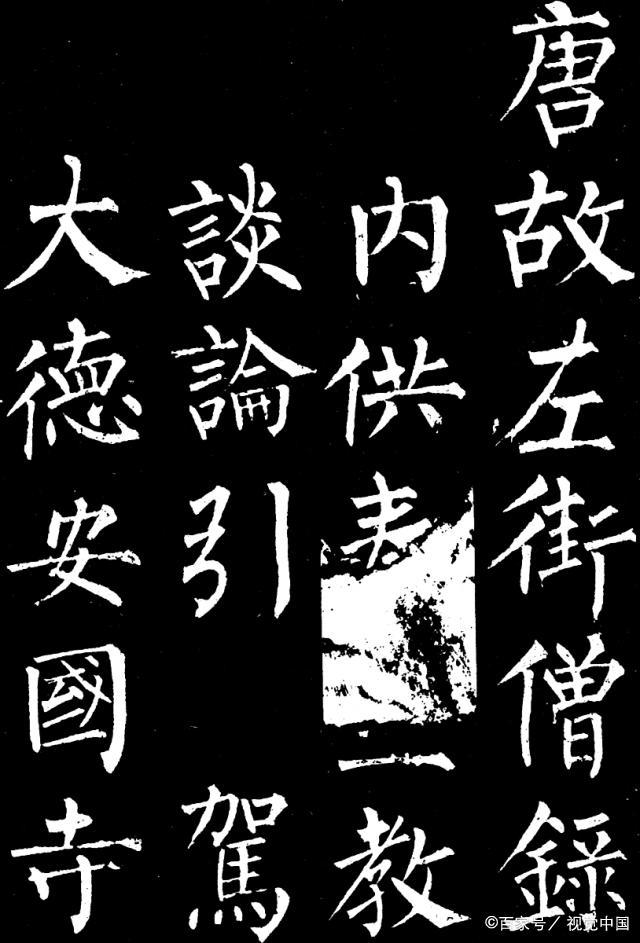 唐故左街僧錄
内供教
談論引駕
大德安國寺
©百家号／视觉中国